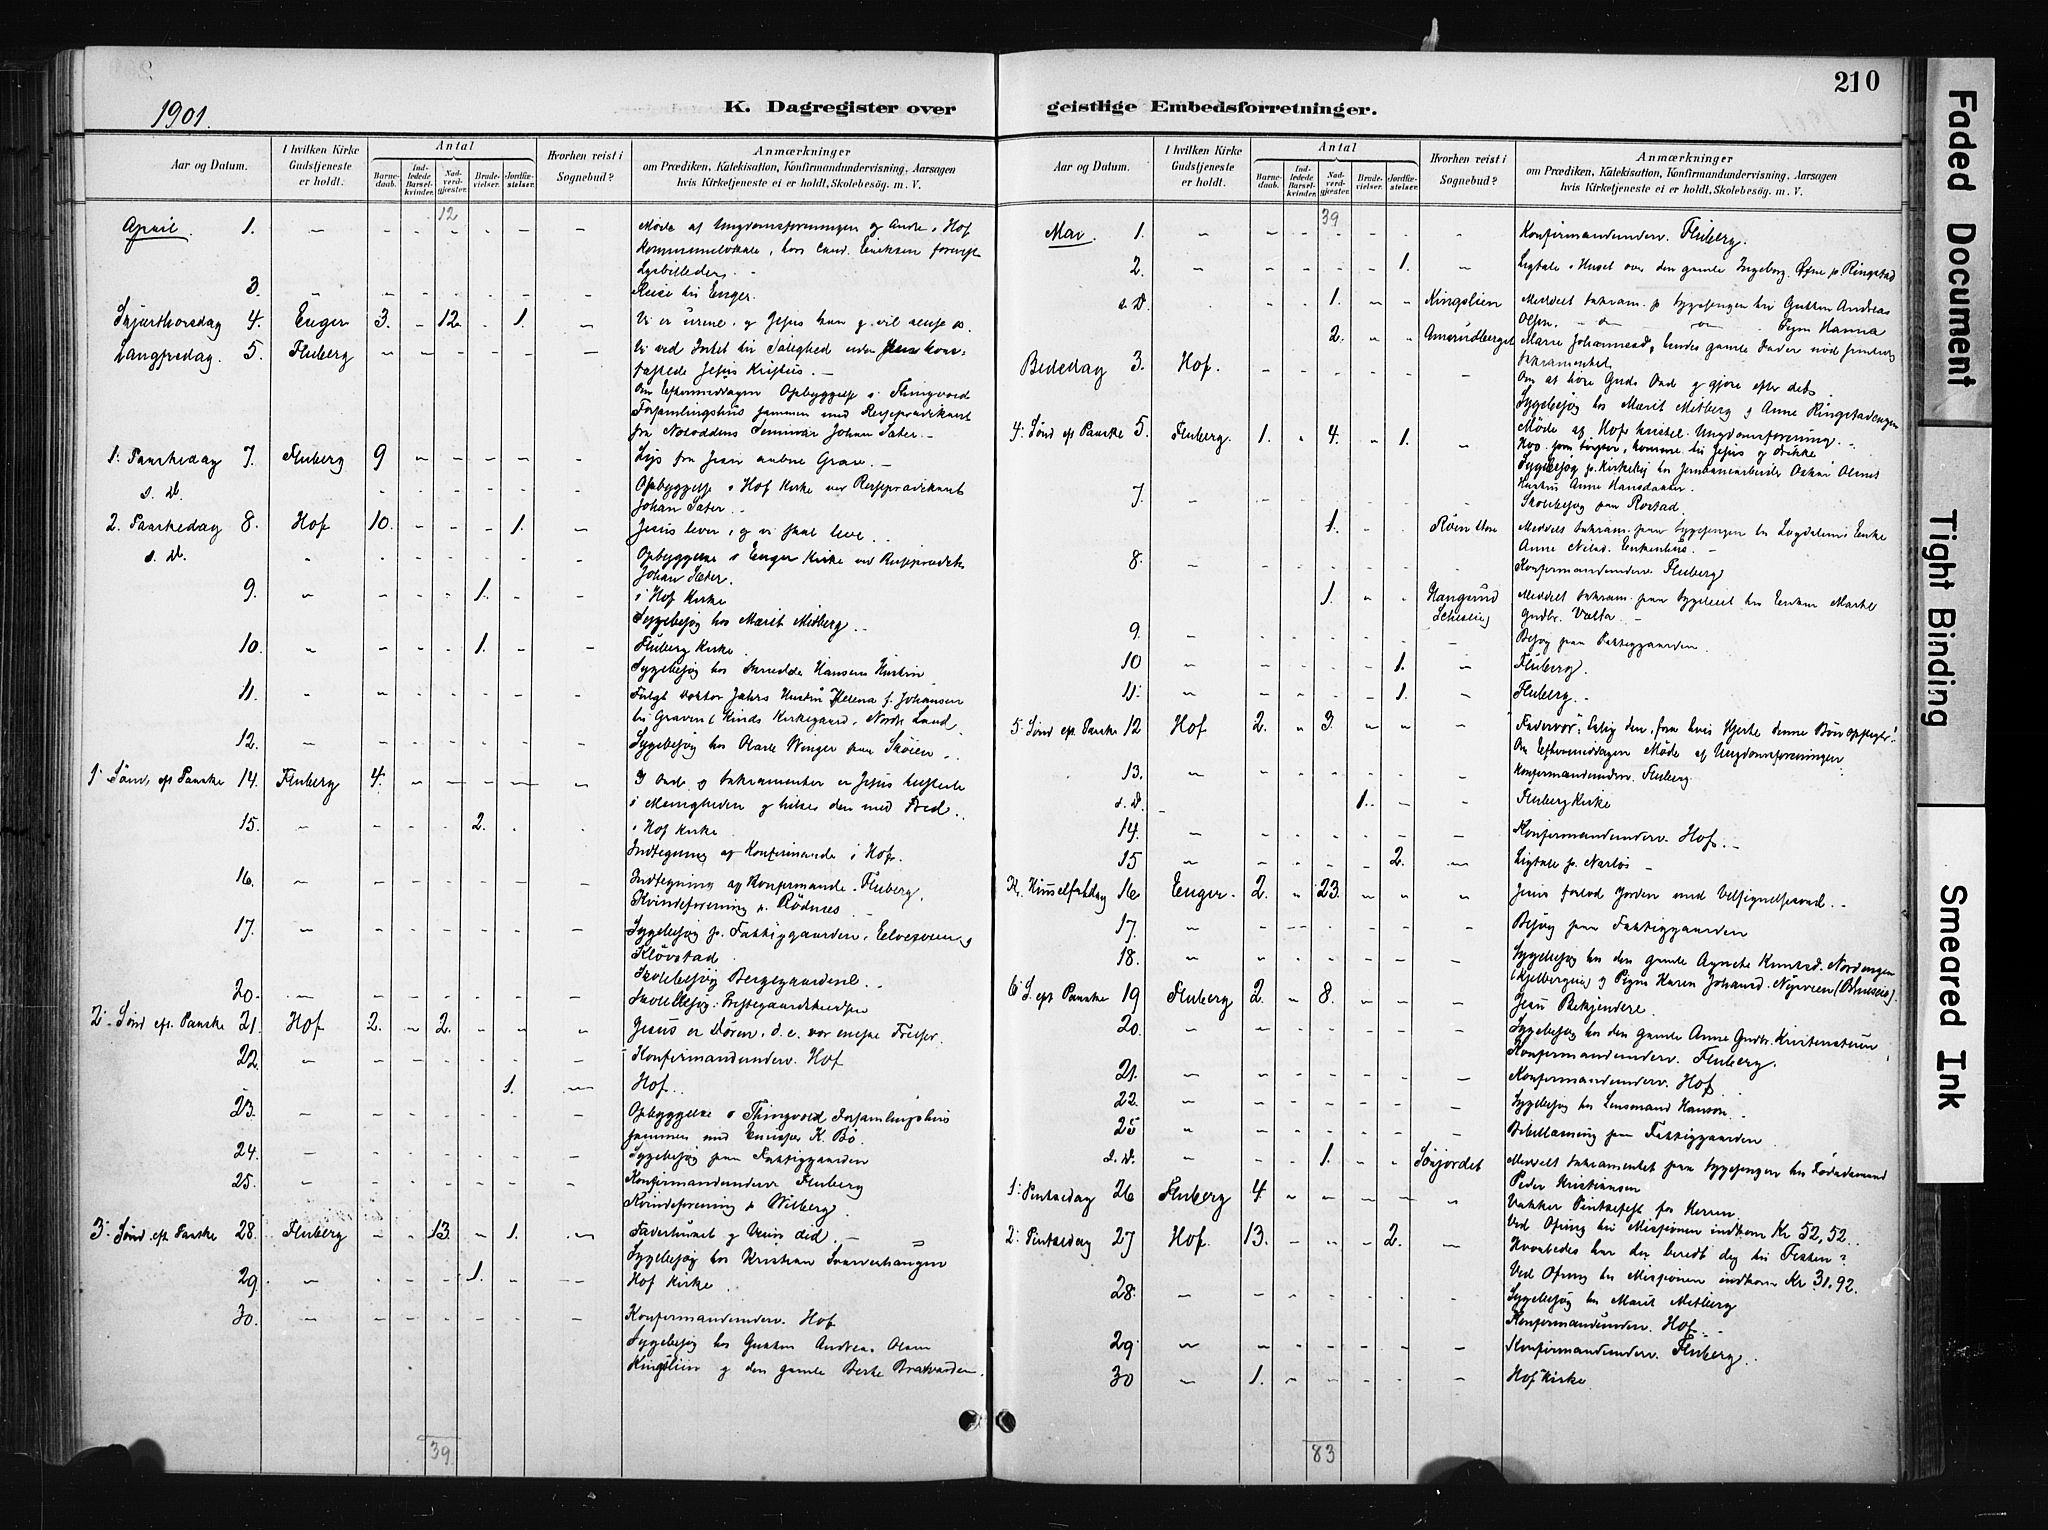 210
1901.
K. Dagregister over geistlige Embedsforretninger.
Aar og Datum.
I hvilken Kirke Gudstjeneste er holdt.
Antal
Barnedaab.
Indledede Barselkvinder.
Nadverdgjester.
Brudevielser.
Jordfæstelser.
Hvorhen reist i Sognebud?
Anmærkninger
om Prædiken, Katekisation, Konfirmandundervisning, Aarsagen
hvis Kirketjeneste ei er holdt, Skolebesøg m. V.
12
April. 1. Møde af Ungdomsforeningen og Andre i Hof
Kommunelokale, hvor Cand. Eriksen foreviste
Lysbilleder.
3. Reise til Enger.
Skjærthorsdag 4. Enger 3. 12. 1. Vi er urene, og Jesus kan og vil rense os.
Langfredag. 5. Fluberg Vi ved Intet til Salighed uden den korsfæstede Jesus Kristus.
Om Eftermiddagen Opbyggelse i Thingvold
Forsamlingshus sammen med Reiseprædikant
fra Notoddens Seminar Johan Sater.
1: Paaskedag 7. Fluberg 9 Lys fra Jesu aabne Grav.
s. D. Opbyggelse i Hof Kirke ved Reiseprædikant
Johan Sater.
2. Paaskedag 8. Hof 10. 1. Jesus lever, og vi skal leve.
s. D. Opbyggelse i Enger Kirke ved Reiseprædik.
Johan Sater.
9. 1. i Hof Kirke
Sygebesøg hos Marit Midberg.
10. 1. Fluberg Kirke.
Sygebesøg hos Hansens Hustru
11. Fulgt Doktor Jahrs Hustru Helena f. Johansen
til Graven (Hinds Kirkegaard, Nordre Land.
12. Sygebesøg hos Olave Winger paa Skøien.
1: Søn. eft. Paaske 14. Fluberg 4. I Ord og Sakramenter er Jesus tilstede
i Menigheden og hilser den med Fred.
15. 2. i Hof Kirke
Indtegning af Konfirmande i Hof.
16. Indtegning af Konfirmande i Fluberg.
Kvindeforening p. Rødnes
17. Sygebesøg p. Fattiggaarden, og
Kløvstad
Skolebesøg Berggaardene.
20. Skolebesøg: Prestegaardskredsen
2: Sønd. eft. Paaske 21. Hof 2. 2. Jesus er Døren, d. e. vor eneste Frelser.
22. Konfirmandunderv. Hof
1. Hof.
23. Opbyggelse i Thingvold Forsamlingshus
sammen med K. Bø.
24. Sygebesøg paa Fattiggaarden
25. Konfirmandunderv Fluberg
Kvindeforening p. Wilberg.
3: Sønd. eft. Paaske 28. Fluberg 13. 1. Faderhuset og Veien did.
Sygebesøg hos Kristian
29. 1. Hof Kirke
30. Konfirmandunderv. Hof
Sygebesøg hos Gutten Andreas Olsen
Kingslien og den gamle Berte Bratvarden.
39
Aar og Datum.
I hvilken Kirke Gudstjeneste er holdt.
Antal
Barnedaab.
Indledede Barselkvinder.
Nadverdgjester.
Brudevielser.
Jordfæstelser.
Hvorhen reist i Sognebud?
Anmærkninger
om Prædiken, Katekisation, Konfirmandundervisning, Aarsagen
hvis Kirketjeneste ei er holdt, Skolebesøg m. V.
39
Mai. 1. Konfirmandunderv. Fluberg.
2. 1. Ligtale i Huset over den gamle Ingeborg Øfne p. Ringstad
s. D. 1. Kingslien Meddelt Sakram. p. Sygesengen til Gutten Andreas
Olsen.
2. Amsrudberget Pigen Hanna
Marie Johannesd., hendes gamle Fader
Sakramentet.
Bededag 3. Hof. Om at høre Guds Ord og gjøre efter det.
Sygebesøg hos Marit Midberg og Anne Ringstadengen
4: Sønd. eft. Paaske 5. Fluberg. 1. 4. 1. Møde af Hofs kristel. Ungdomsforening.
Hvo som tørster, komme til Jesus og drikke
Sygebesøg p. hos Jernbanearbeider Oskar
Hustru Anne Hansdatter.
7. Skolebesøg paa Rostad.
1. Meddelt Sakram. paa Sygesengen Enke
Anne Nilsd.
8. Konfirmandunderv. Fluberg
1. Haugsrund Meddelt Sakram. paa Sygeleiet hos Enken Marthe
Gudbr.
9. Besøg paa Fattiggaarden.
10 1. Fluberg.
11. 1. Fluberg.
5: Sønd. eft. Paaske 12 Hof 2. 3. "Fadervor": Salig den, fra hvis Hjerte denne Bøn opstiger!
Om Eftermiddagen Møde af Ungdomsforeningen
13. Konfirmandunderv. Fluberg
s. D. 1. Fluberg Kirke
14. Konfirmandunderv. Hof.
15 2. Ligtale p.
Kr. Himmelfartsdag 16 Enger. 2. 23. Jesus forlod Jorden med Velsignelsesord.
17. Besøg paa Fattiggaarden
18. Sygebesøg hos den gamle Agnethe Knutsd. Nordengen
(Kjelbergeie) og Pigen Karen Johansd. Nysveen
6: S. eft. Paaske 19 Fluberg 2. 8. Jesu Bekjendere.
20. Sygebesøg hos den gamle Anne Gudbr.
Konfirmandunderv. Fluberg.
21. Konfirmandunderv. Hof.
22. Sygebesøg hos Lensmand Hanson.
25 Bibellæsning paa Fattiggaarden
s. D. 1. Sønjordet Meddelt Sakramentet paa Sygesengen hos Føderaadsmand
Peder Kristiansen
1: Pintsedag 26 Fluberg 4. Vakker Pintsefest for Herren.
Ved Ofring til Missionen indkom Kr 52,52.
2: Pintsedag 27 Hof. 13. 2. Hvorledes har du beredt dig til Festen?
Ved Ofring til Missionen indkom Kr. 31,92.
28. Sygebesøg hos Marit Midberg
Konfirmandunderv. Hof.
29 Konfirmandunderv. Fluberg.
30 1. Hof Kirke.
83
Faded Document
Tight Binding
Smeared Ink